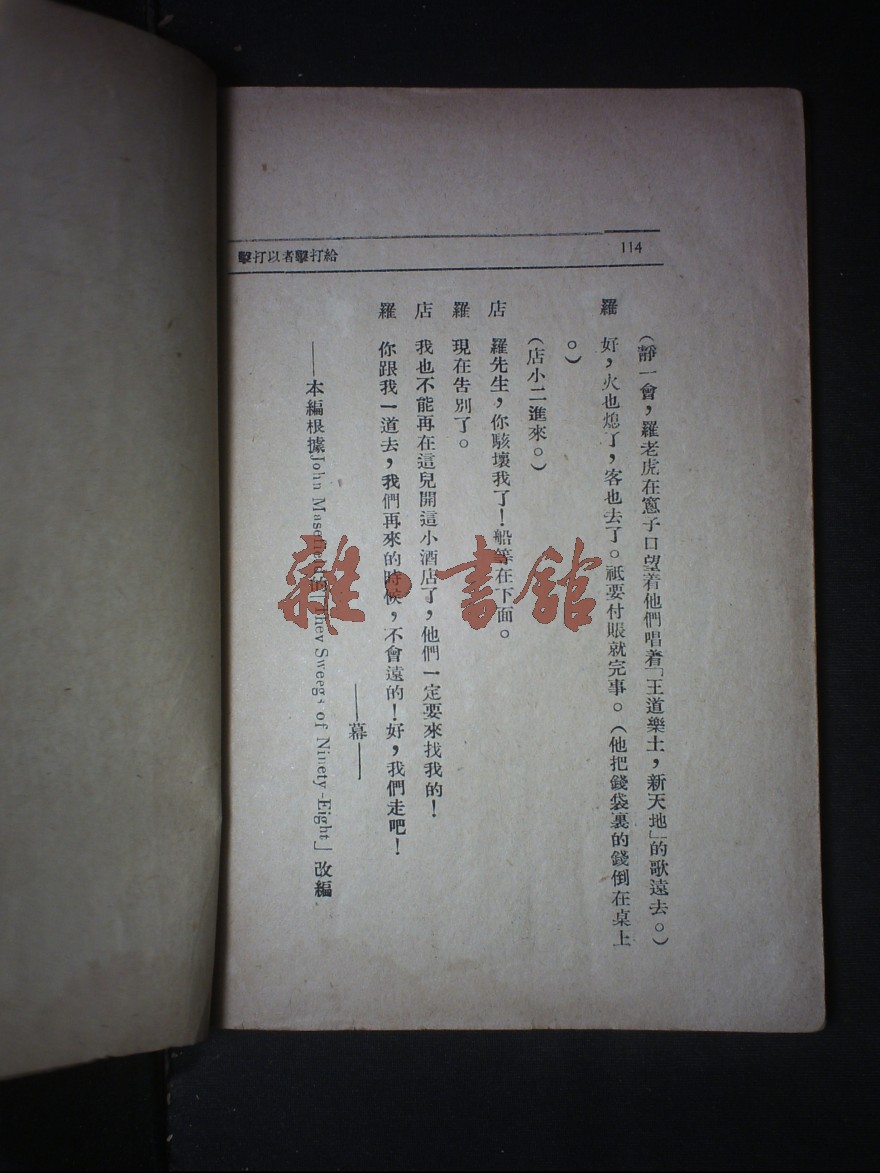 114
擊打以者擊打給
(靜一會,羅老虎在窻子口望着他們唱着「王道樂土,新天地」的歌遠去。)
羅 好,火也熄了,客也去了。祇要付賬就完事。(他把錢袋裏的錢倒在桌上
。)
(店小二進來。)
店 羅先生,你駭壞我了!船等在下面。
羅 現在告別了。
店 我也不能再在這兒開這小酒店了,他們一定要來找我的!
羅 你跟我一道去,我們再來的時候,不會遠的!好,我們走吧!
——幕——
——本編根據John Sweeps of Ninety-Eight」改編
雜·書館